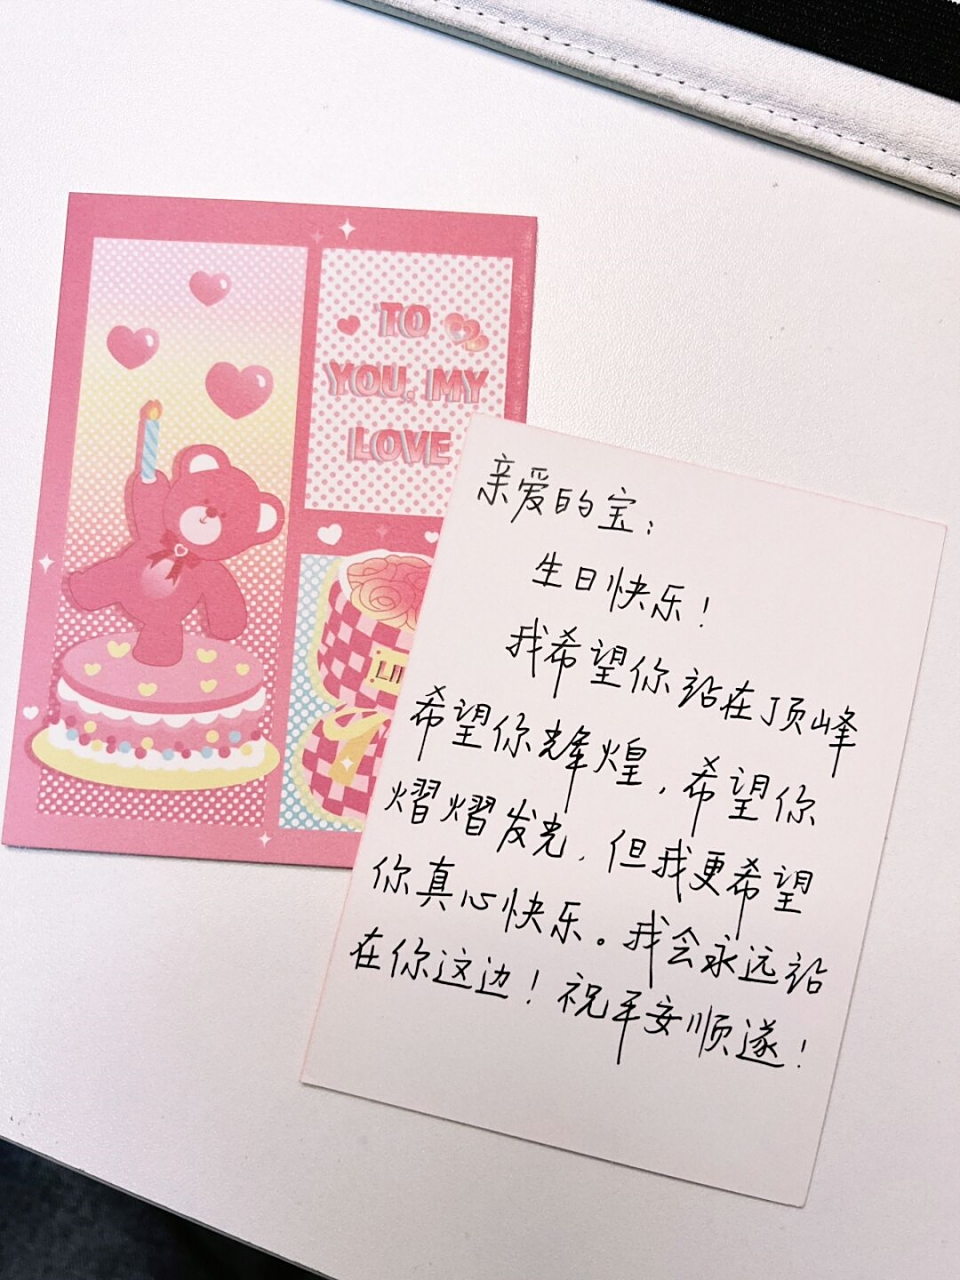 TO
YOU, MY
LOVE
亲爱的宝：
生日快乐！
我希望你站在顶峰
希望你辉煌，希望你
熠熠发光，但我更希望
你真心快乐。我会永远站
在你这边！祝平安顺遂！